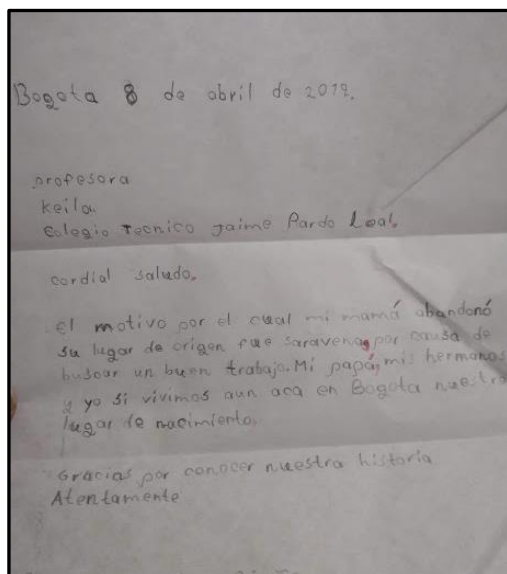 Bogota 8 de abril de 2019.
profesora
Keila.
Colegio Tecnico Jaime Pardo Leal.
cordial saludo.
El motivo por el cual mi mamá abandonó
su lugar de origen fue saravena, por causa de
buscar un buen trabajo. Mi papá, mis hermanos
y yo si vivimos aun aca en Bogota nuestro
lugar de nacimiento.
Gracias por conocer nuestra historia
Atentamente